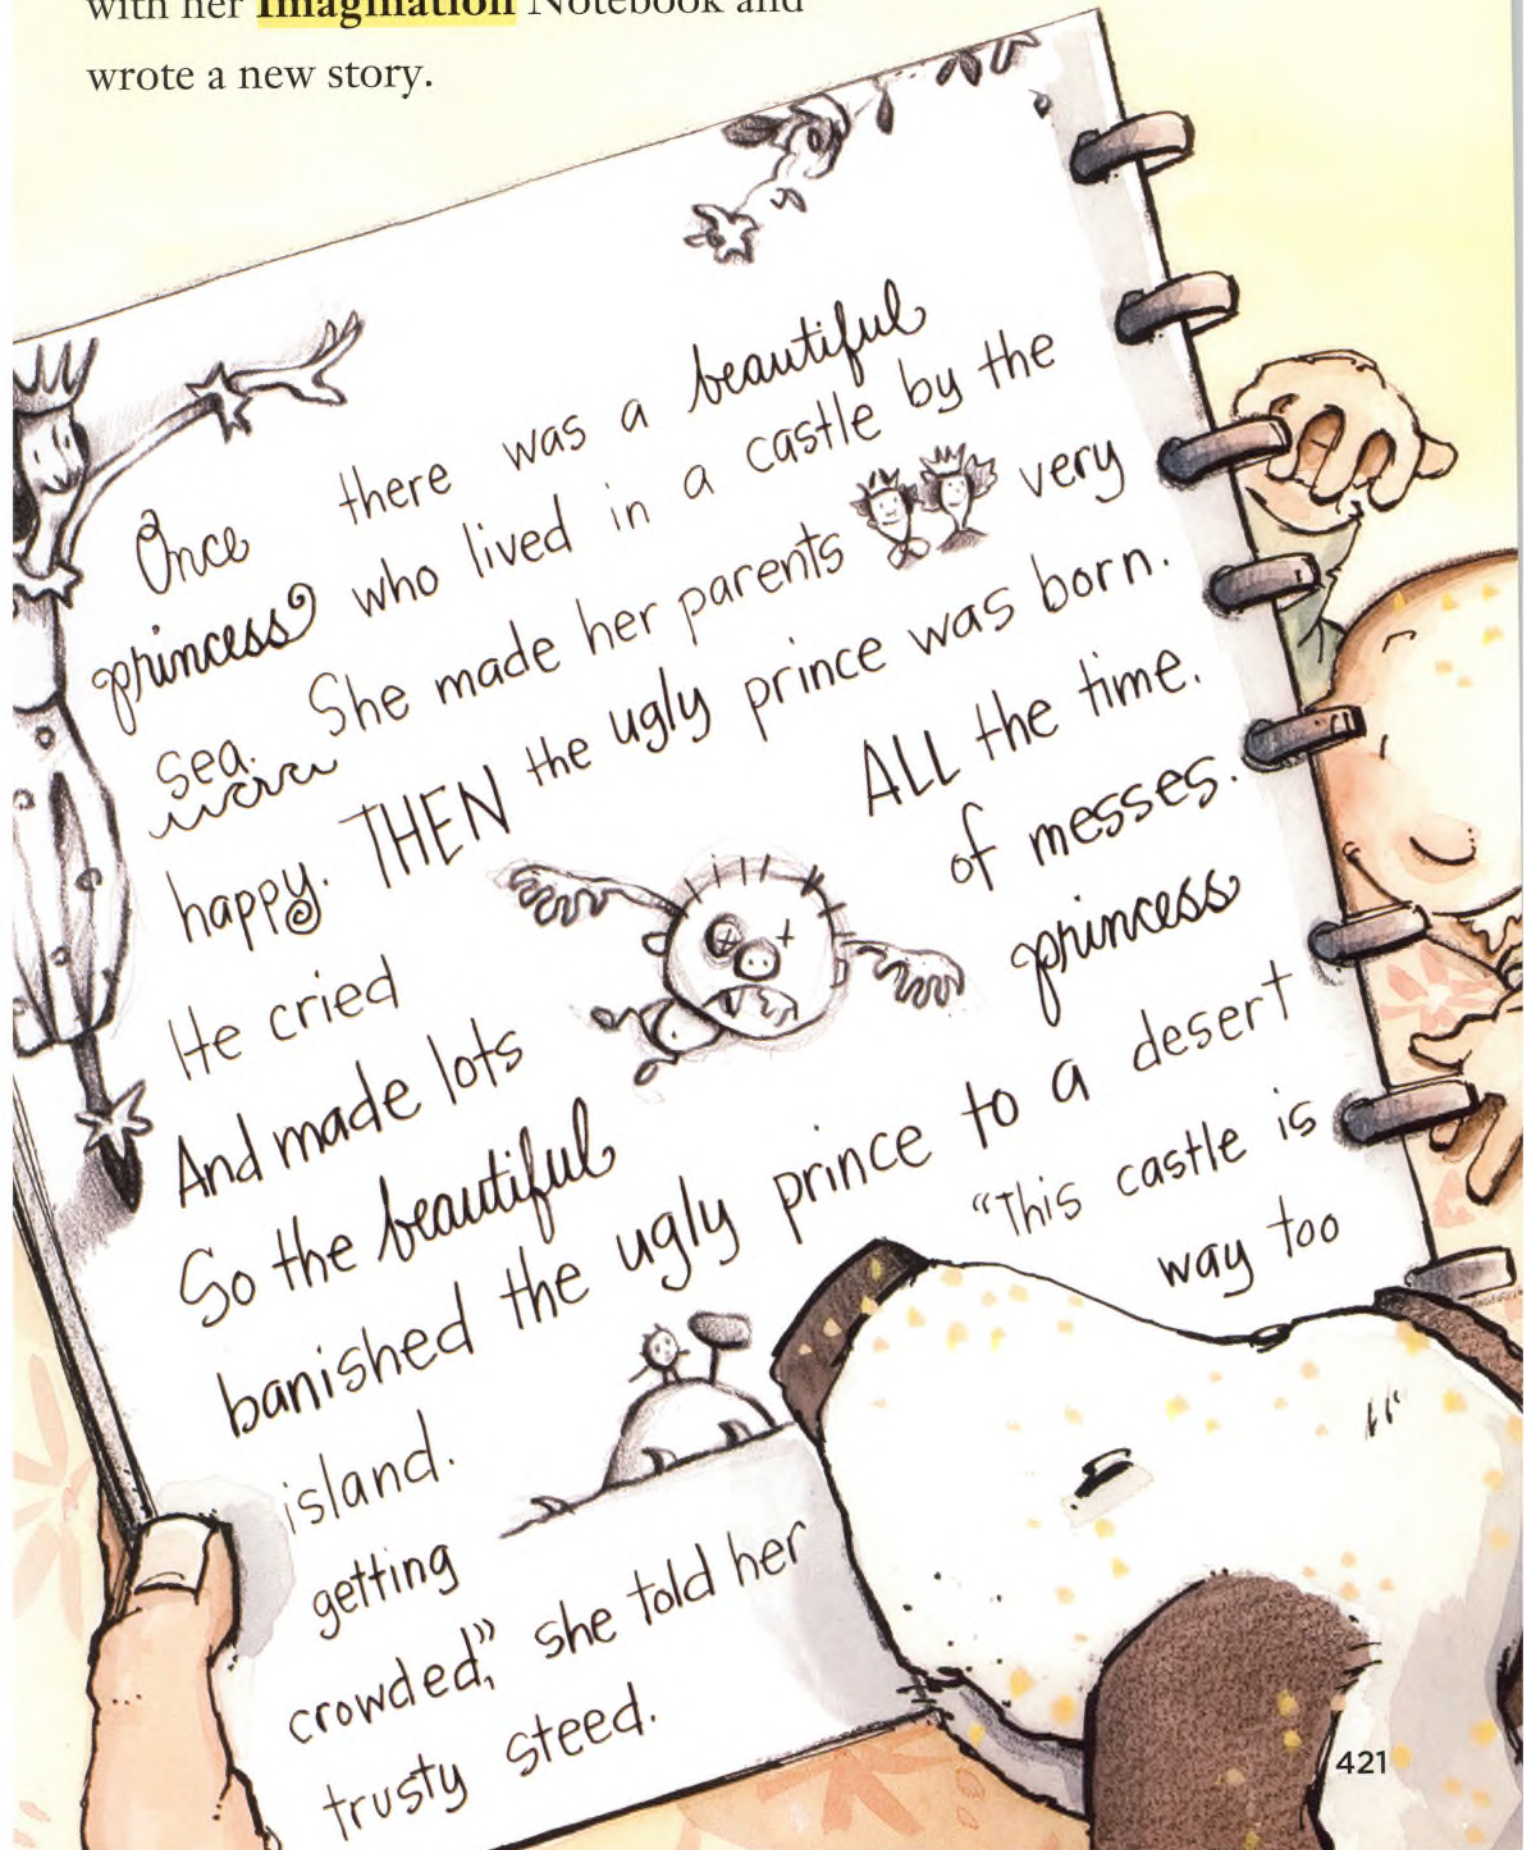 with her Imagination Notebook and
wrote a new story.
Once there was a beautiful
princess who lived in a castle by the
sea. She made her parents very
happy. THEN the ugly prince was born.
He cried ALL the time.
And made lots of messes.
So the beautiful princess
banished the ugly prince to a desert
island. "This castle is
getting way too
crowded," she told her
trusty steed.
421